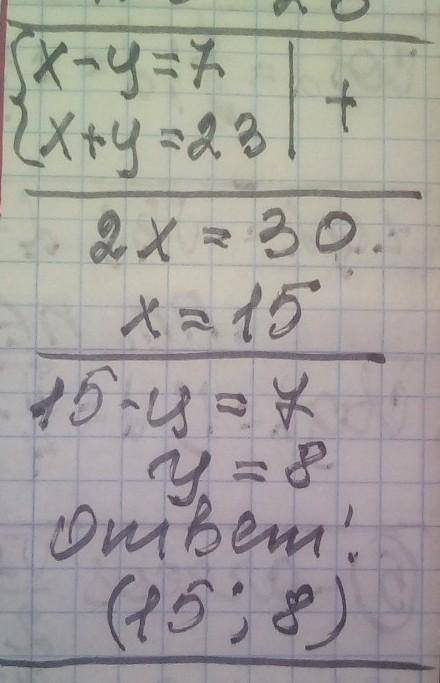 {x-y=7 | +
{x+y=23 |
2x=30
x=15
15-y=7
y=8
Ответ:
(15; 8)